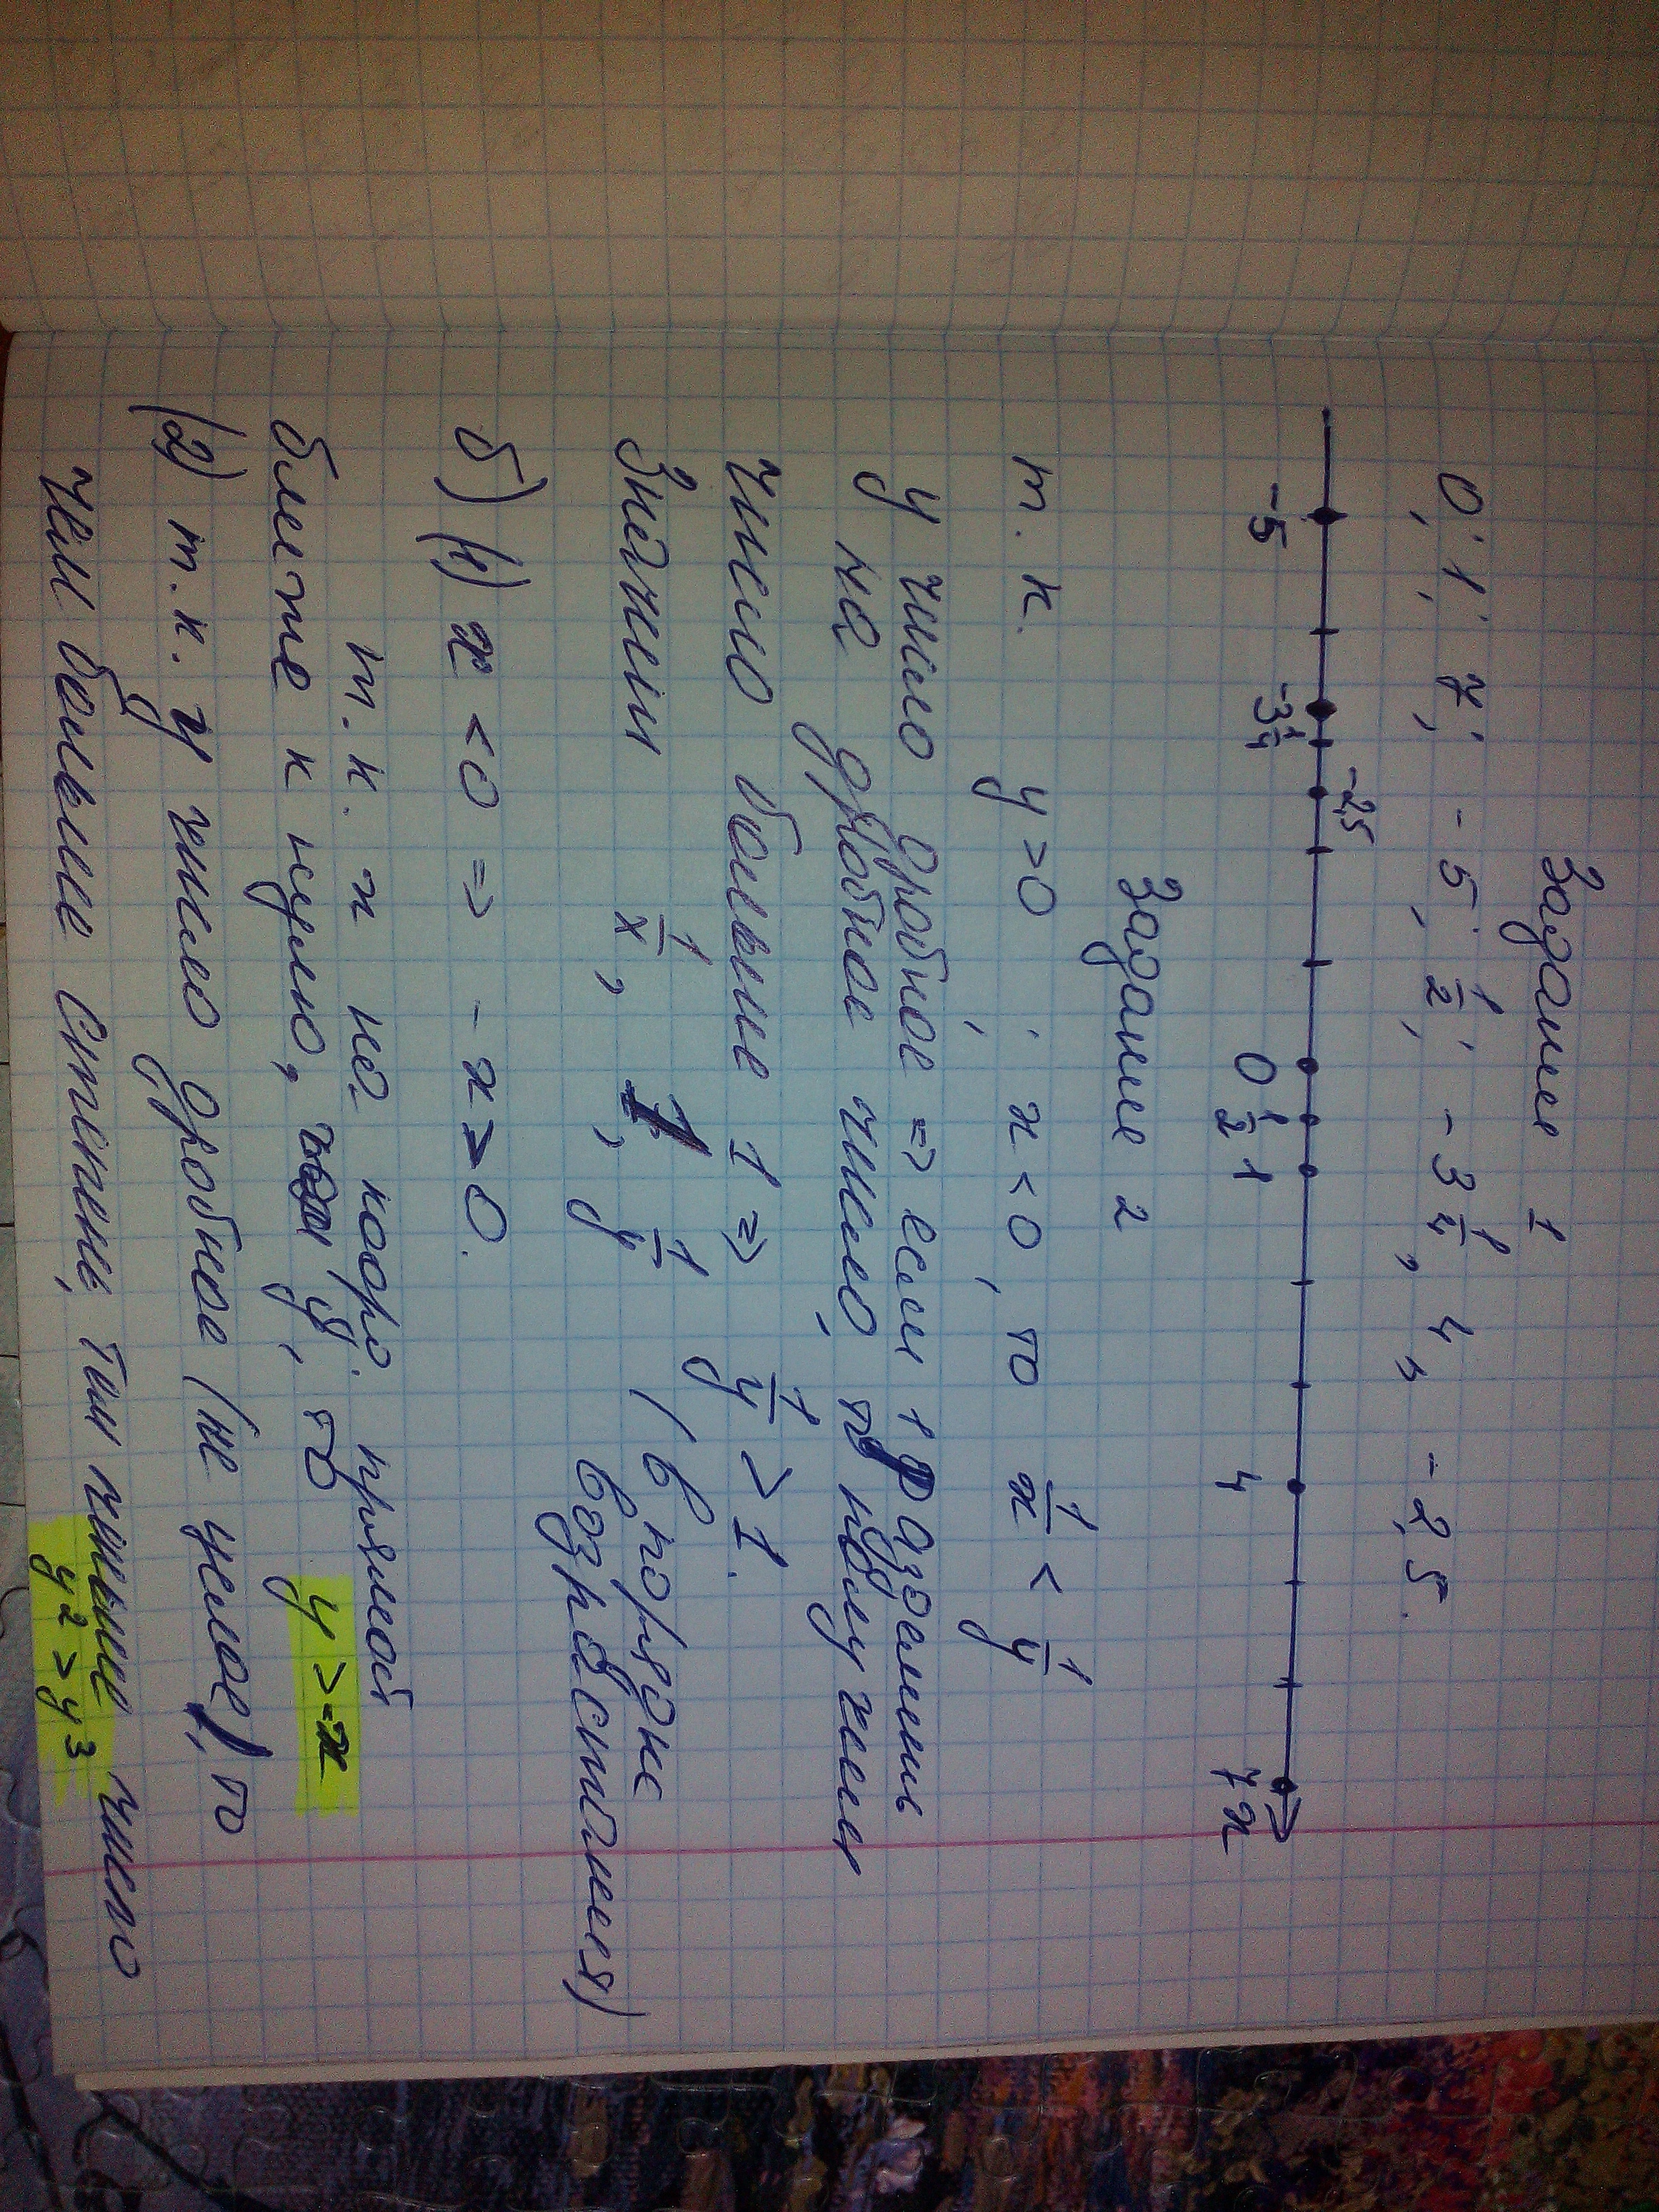 Задание 1
0; 1; 7; -5; 1/2; -3 1/4, 4, -2,5.
-2,5
-5 -3 1/4 0 1/2 1 4 7 x
Задание 2
т.к. y>0; x<0, то 1/x < 1/y
y число дробное => если 1 разделить
на дробное число, то получим
число больше 1 => 1/y > 1.
Значит 1/x, 1, 1/y (в порядке
возрастания)
б) (1) x<0 => -x>0.
т.к. x на коорд. прямой
ближе к нулю, чем y, то y>-x
(2) т.к. y число дробное (не целое), то
чем больше степень, тем меньше число
y² > y³